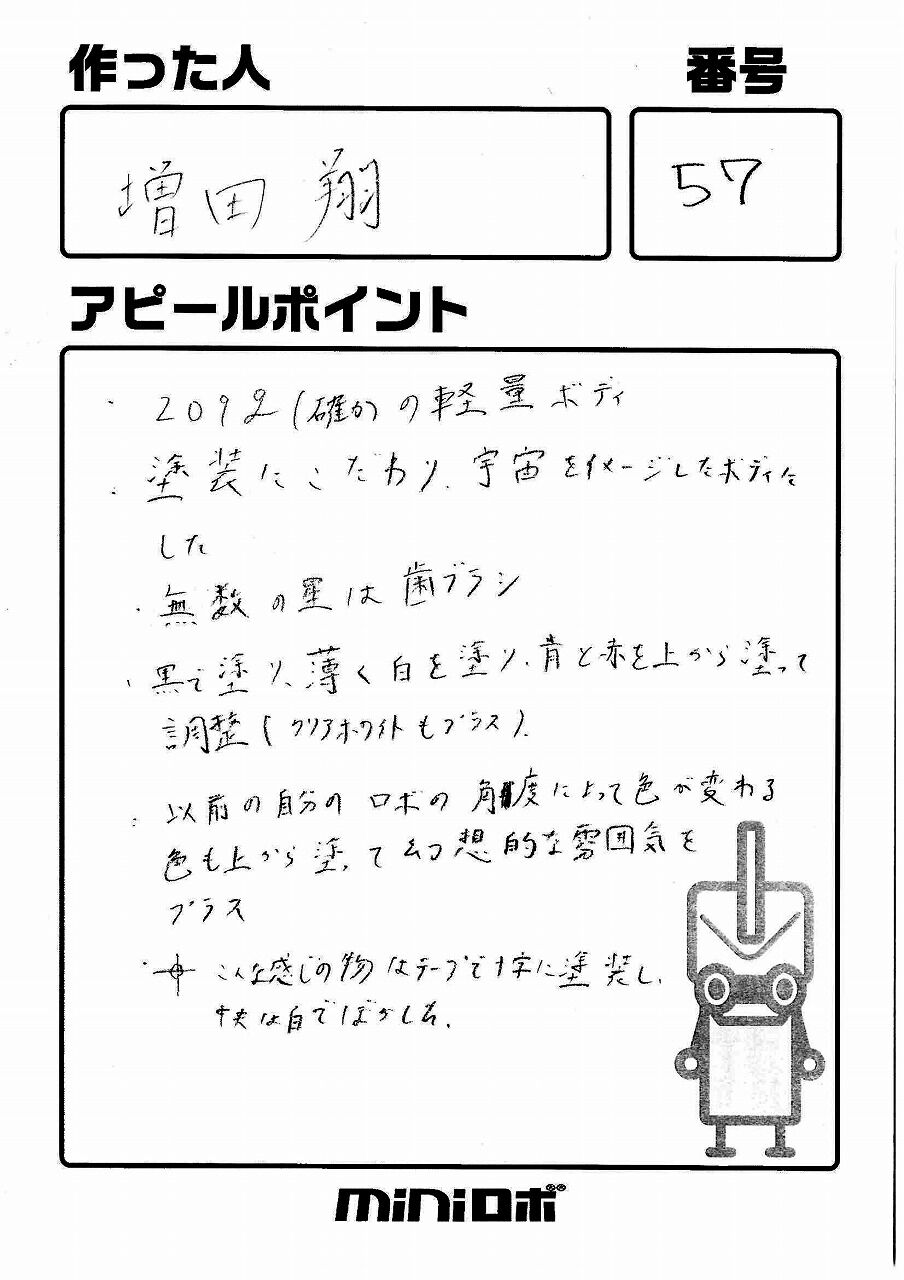 作った人
番号
増田 翔
57
アピールポイント
・209g(確か)の軽量ボディ
・塗装にこだわり、宇宙をイメージしたボディに
した
・無数の星は歯ブラシ
・黒で塗り、薄く白を塗り、青と赤を上から塗って
調整(クリアホワイトもプラス)、
・以前の自分のロボの角度によって色が変わる
色も上から塗って幻想的な雰囲気を
プラス
・こんな感じの物はテープで十字に塗装し、
中央は白でぼかした。
miniロボ